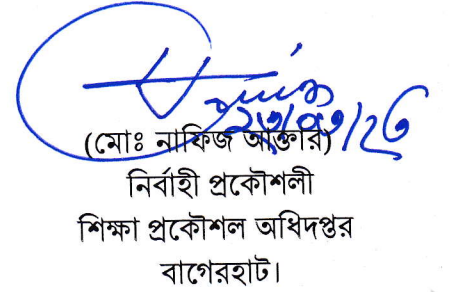 (মোঃ নাফিজ আক্তার)
নির্বাহী প্রকৌশলী
শিক্ষা প্রকৌশল অধিদপ্তর
বাগেরহাট।